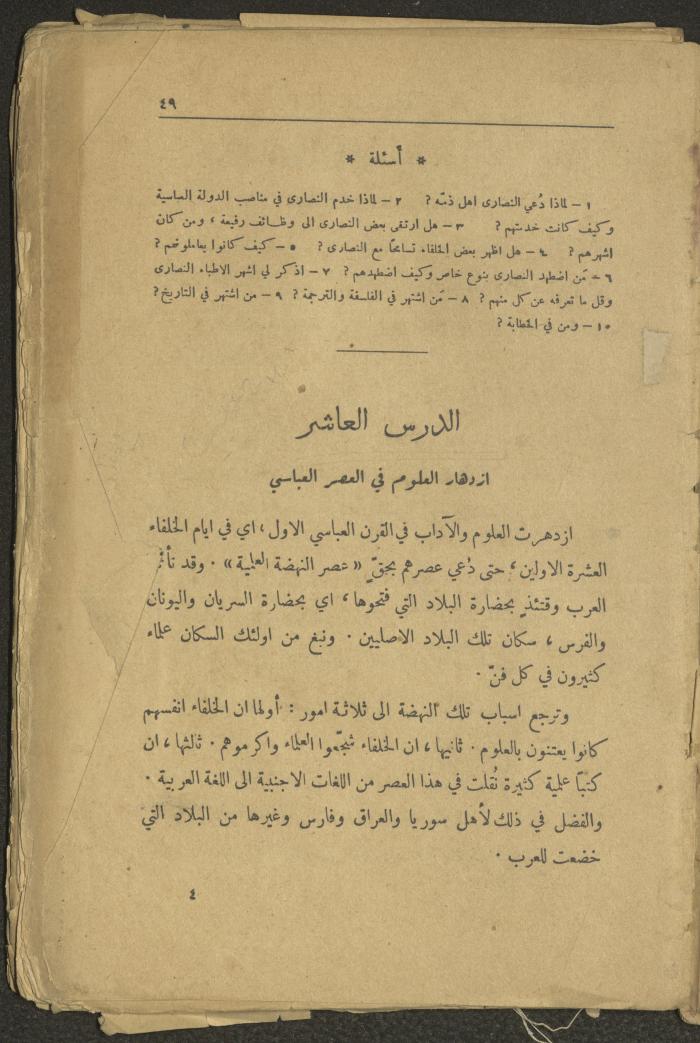 ٤٩
* أسئلة *
١ – لماذا دُعي النصارى اهل ذمّة ؟ ٢ – لماذا خدم النصارى في مناصب الدولة العباسية
وكيف كانت خدمتهم ؟ ٣ – هل ارتقى بعض النصارى الى وظائف رفيعة ، ومن كان
اشهرهم ؟ ٤ – هل اظهر بعض الخلفاء تسامحًا مع النصارى ؟ ٥ – كيف كانوا يعاملونهم ؟
٦ – مَن اضطهد النصارى بنوع خاص وكيف اضطهدهم ؟ ٧ – اذكر لي اشهر الاطباء النصارى
وقل ما تعرفه عن كل منهم ؟ ٨ – مَن اشتهر في الفلسفة والترجمة ؟ ٩ – من اشتهر في التاريخ ؟
١٠ – ومن في الخطابة ؟
الدرس العاشر
ازدهار العلوم في العصر العباسي
ازدهرت العلوم والآداب في القرن العباسي الاول ، اي في ايام الخلفاء
العشرة الاولين ، حتى دُعي عصرهم بحقّ « عصر النهضة العلمية » . وقد تأثر
العرب وقتئذٍ بحضارة البلاد التي فتحوها ، اي بحضارة السريان واليونان
والفرس ، سكان تلك البلاد الاصليين . ونبغ من اولئك السكان علماء
كثيرون في كل فنّ .
وترجع اسباب تلك النهضة الى ثلاثة امور : أولها ان الخلفاء انفسهم
كانوا يعتنون بالعلوم . ثانيها ، ان الخلفاء شجّعوا العلماء واكرموهم . ثالثها ، ان
كتبًا علمية كثيرة نُقلت في هذا العصر من اللغات الاجنبية الى اللغة العربية .
والفضل في ذلك لأهل سوريا والعراق وفارس وغيرها من البلاد التي
خضعت للعرب .
٤